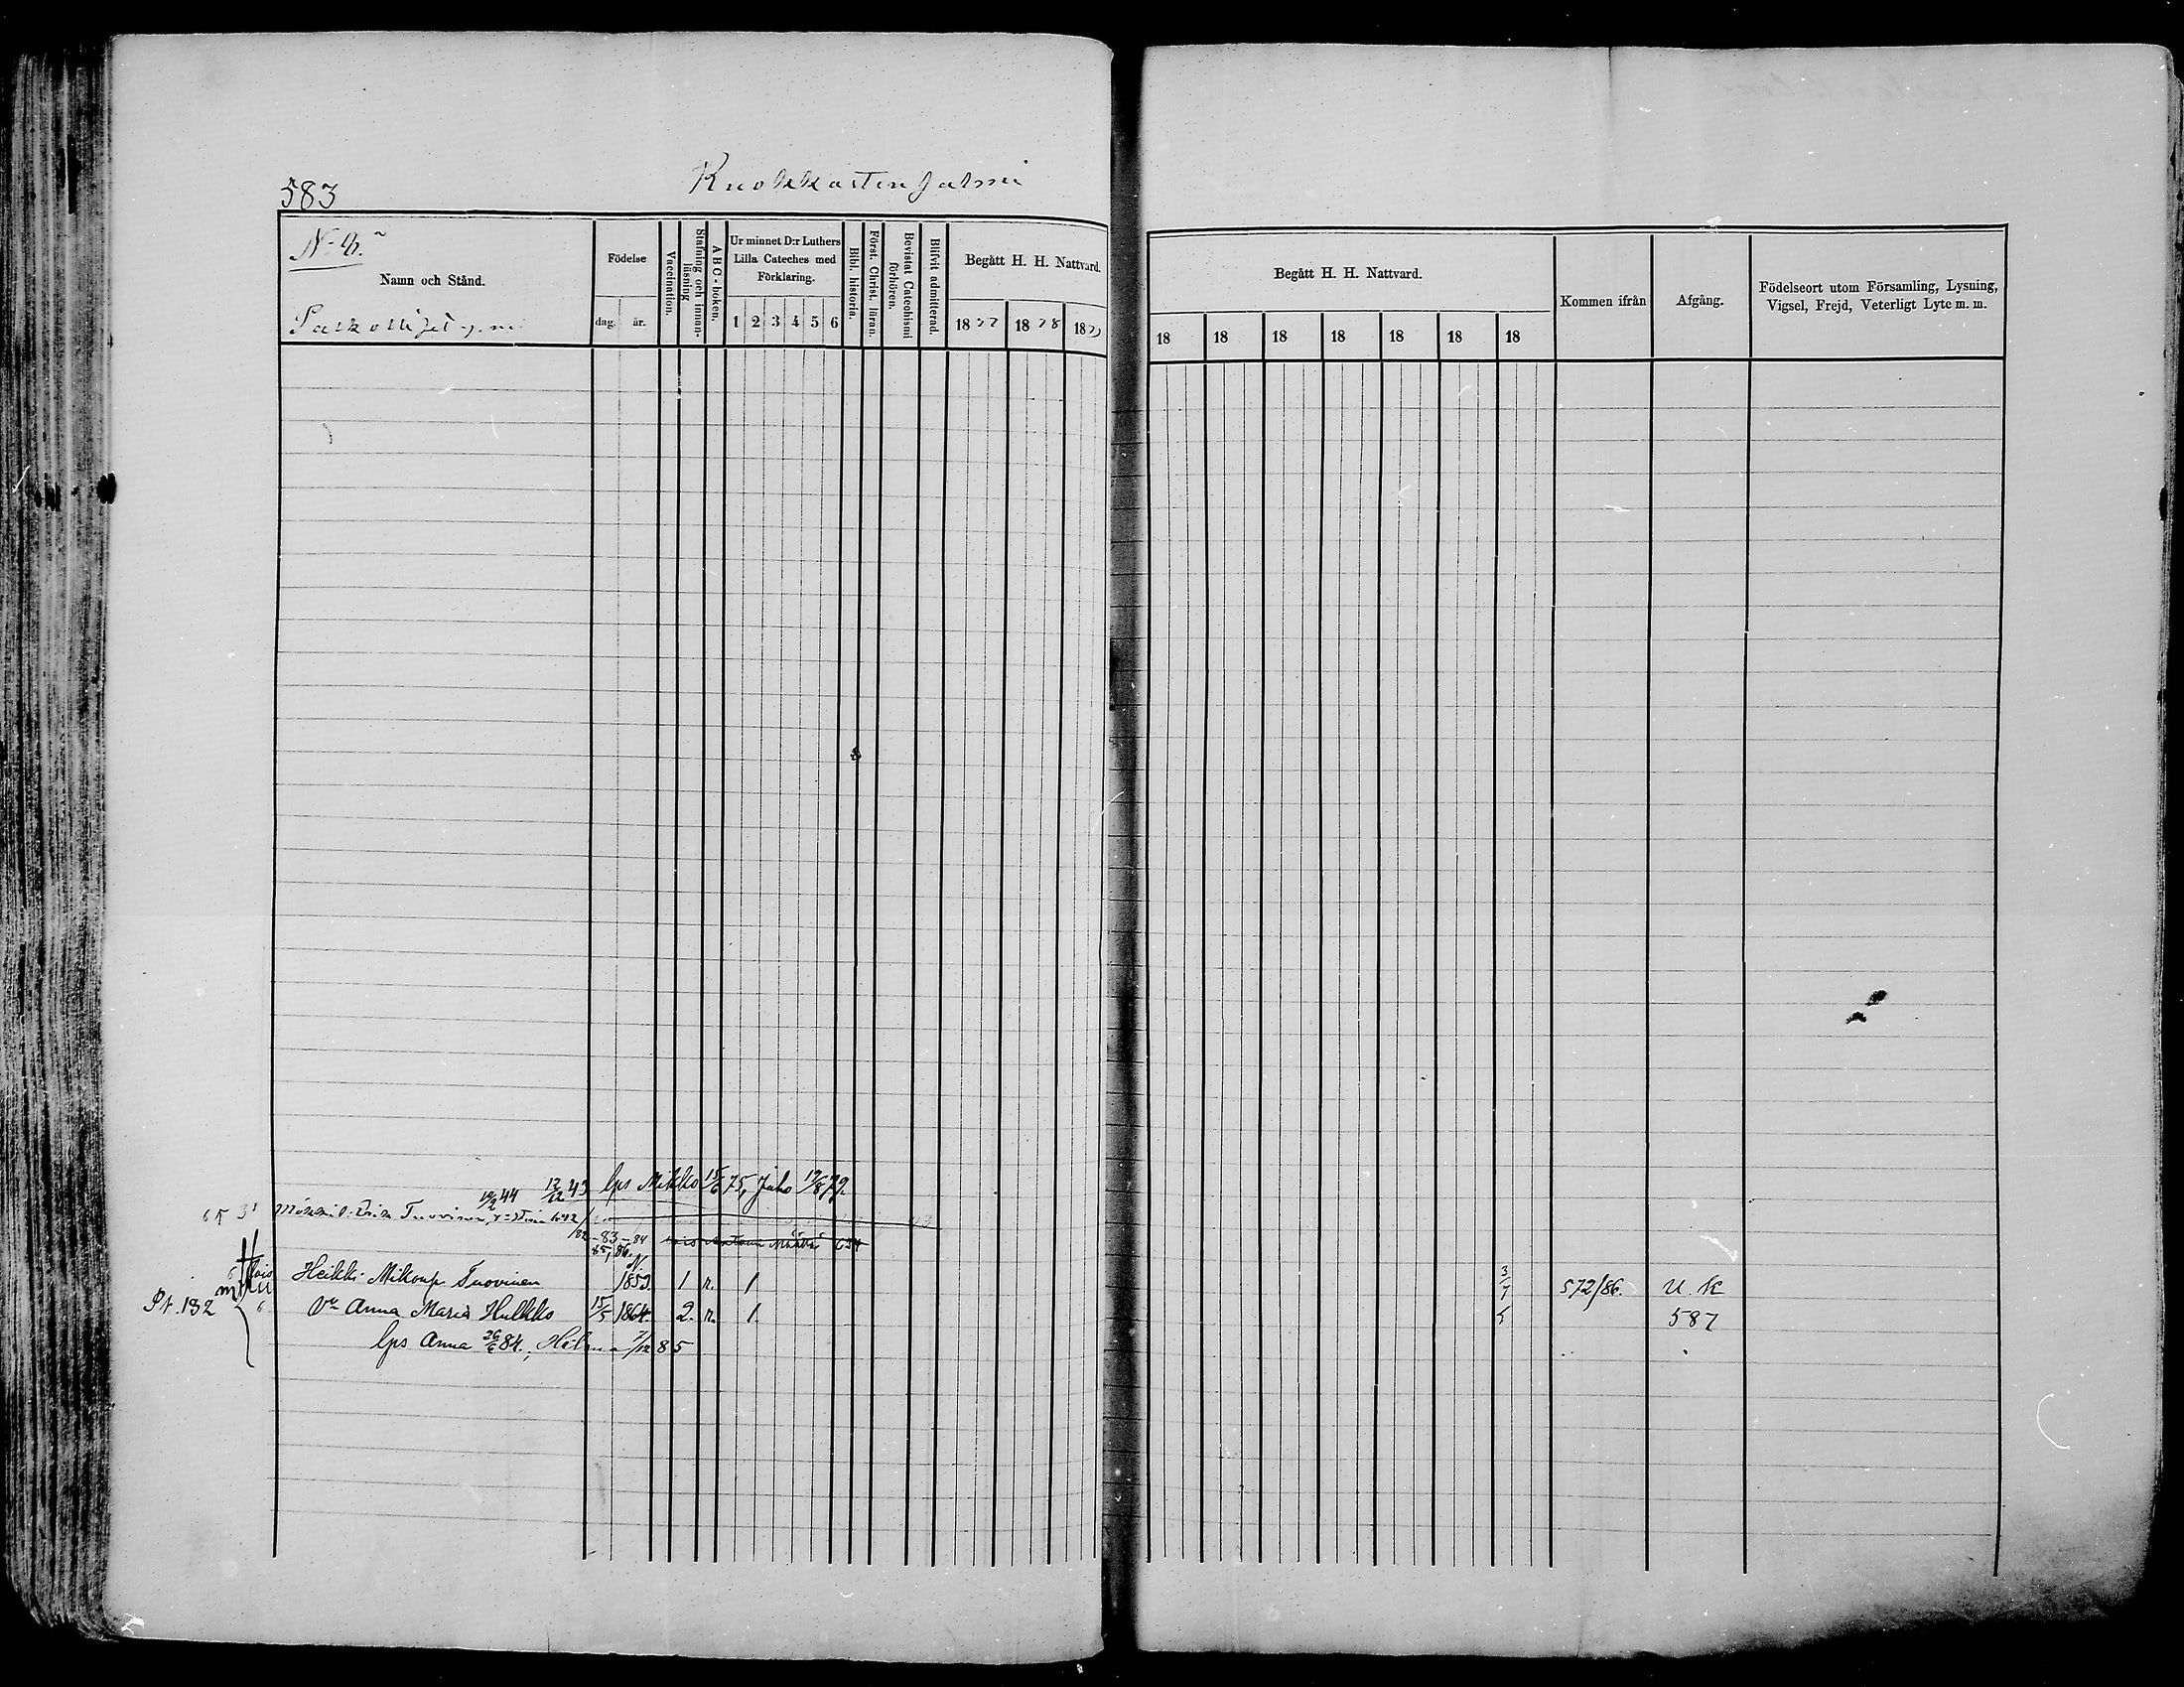 583
Namn och Stånd.
Födelse
dag. år.
Vaccination.
Stafning och innan-läsning
ABC-boken.
Ur minnet D:r Luthers Lilla Cateches med Förklaring.
1 2 3 4 5 6
Bibl. historia.
Först. Christ. läran.
Bevistat Catechismi förhören.
Blifvit admitterad.
Begått H. H. Nattvard.
1877 1878 1879
Begått H. H. Nattvard.
18 18 18 18 18 18 18
Kommen ifrån
Afgång.
Födelseort utom Församling, Lysning, Vigsel, Frejd, Veterligt Lyte m. m.
12/12 43 lps Mikko 15/6 75, Juho 19/8 79.
Tuovinen
-83-84
85, 86.
Heikki Mikonp. Tuovinen 1859. 1 n. 1 3/7 572/86. U. K
Pt. 182 Vo Anna Maria Hulkko 15/5 1864. 2. n. 1. 5 587
lps Anna 26/6 84., Hilma 7/12 85